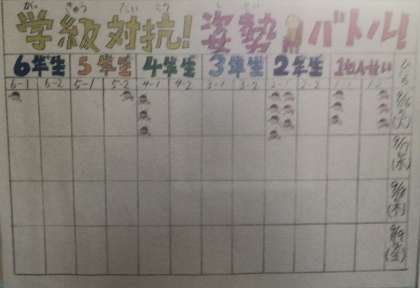 がっ きゅう たい こう し せい
学級対抗!姿勢バトル!
6年生 5年生 4年生 3年生 2年生 1年生
6-1 6-2 5-1 5-2 4-1 4-2 3-1 3-2 2-1 2-2 1-1 1-2
(火)
(水)
(木)
(金)